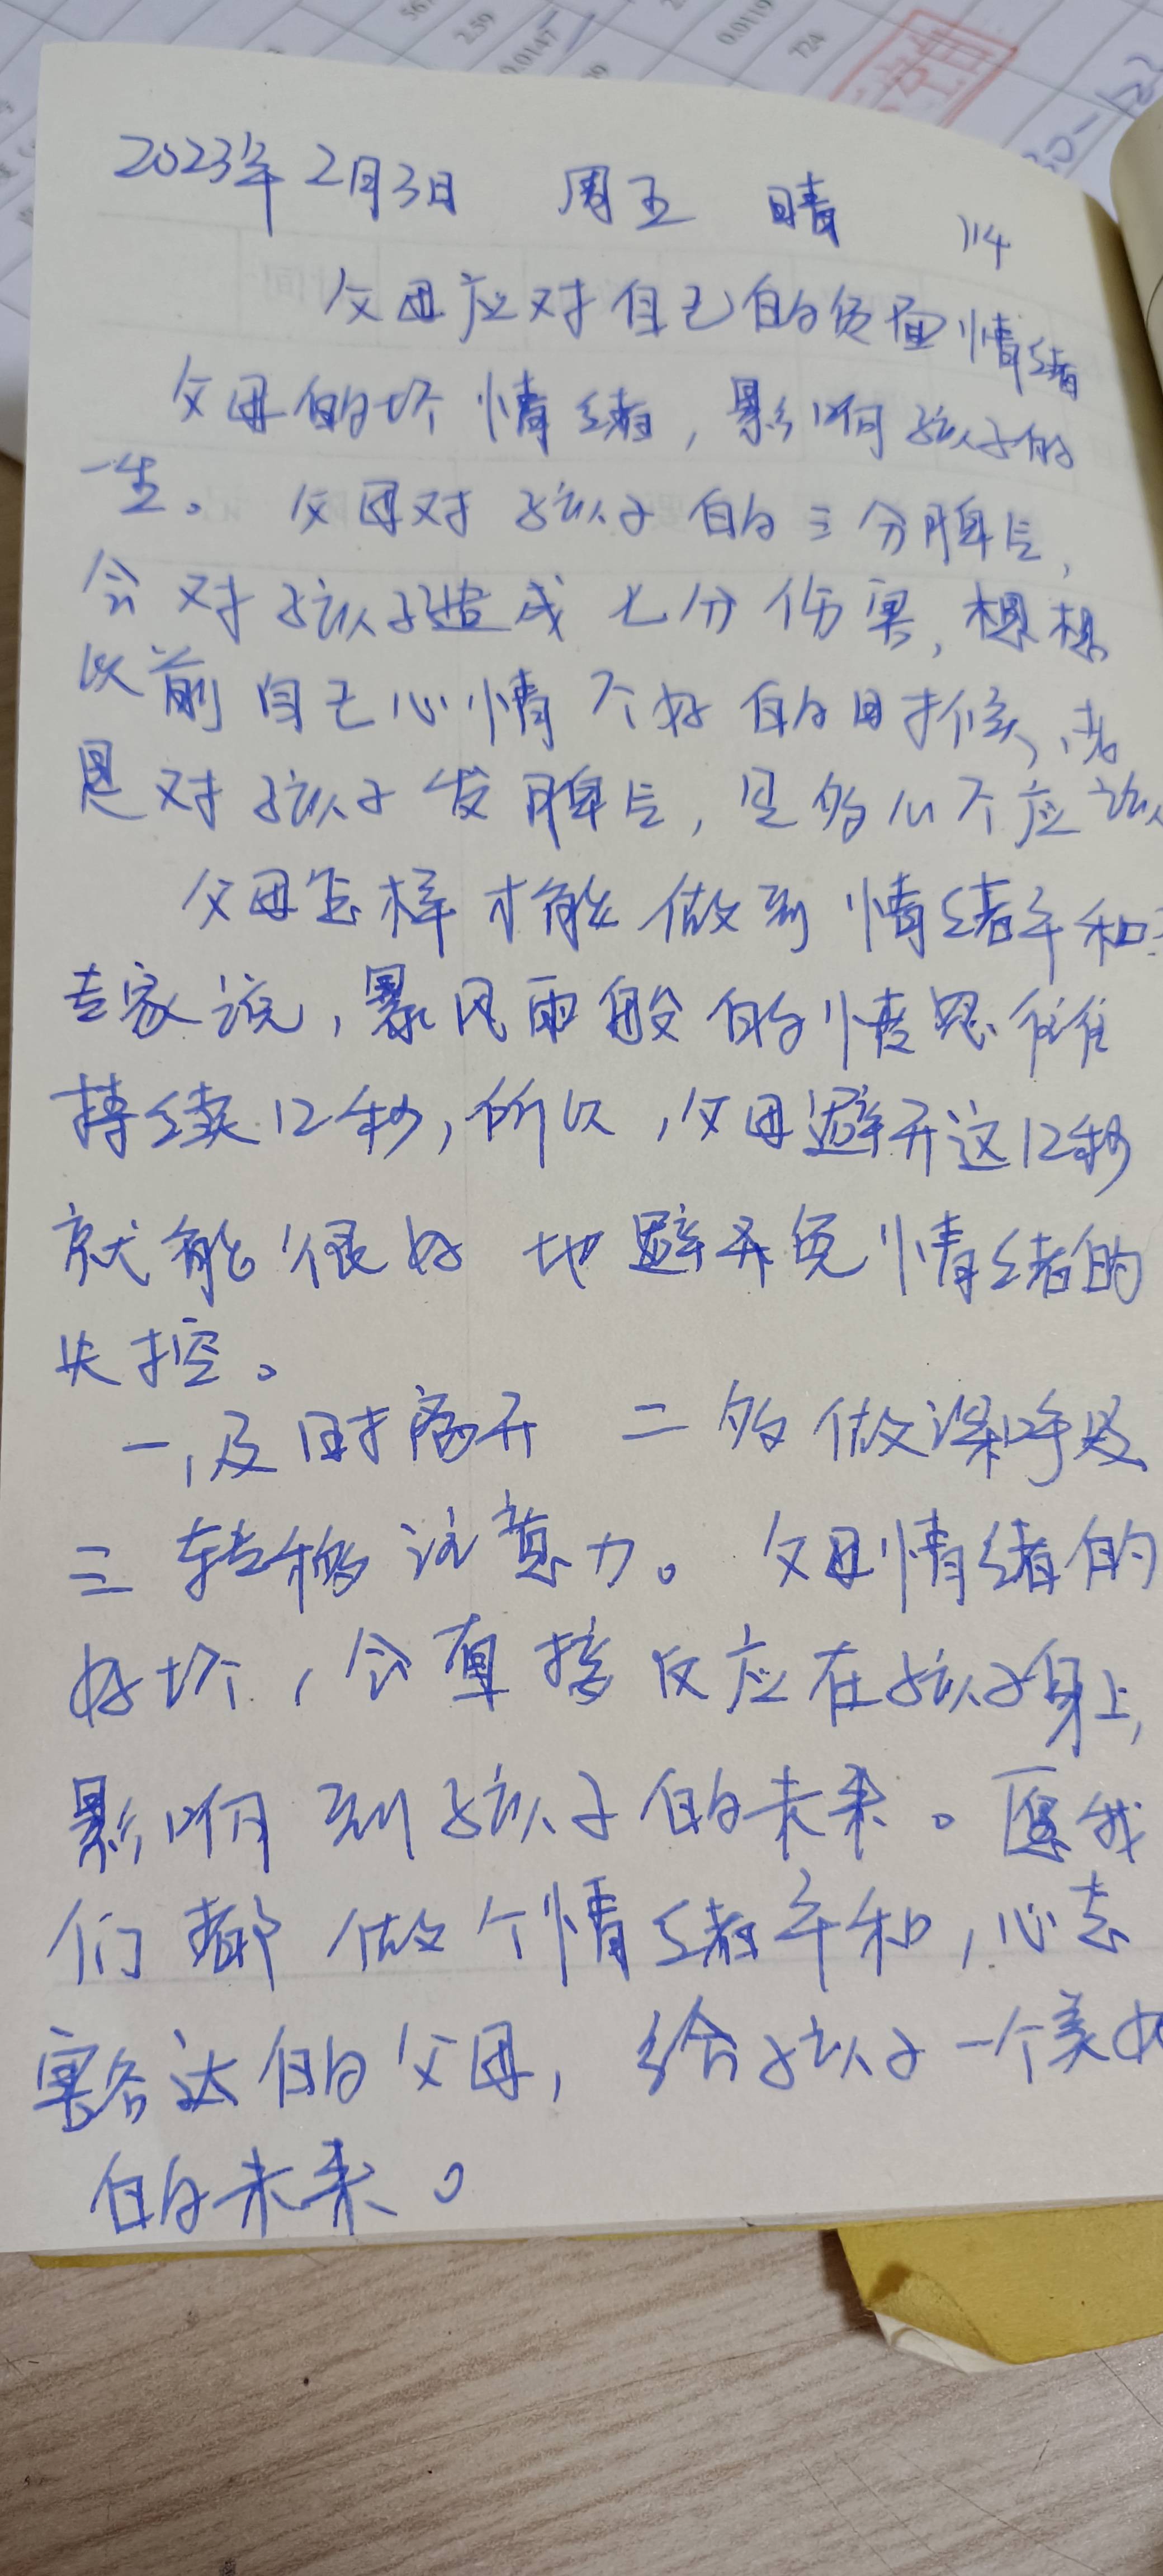 567
2.59
0.0147
0.0110
724
2023年2月3日 周五 晴 114
父母应对自己的负面情绪
父母的坏情绪，影响孩子的
一生。父母对孩子的三分脾气，
会对孩子造成七分伤害，想想
以前自己心情不好的时候，老
是对孩子发脾气，是多么不应该
父母怎样才能做到情绪平和？
专家说，暴风雨般的情思往往
持续12秒，所以，父母避开这12秒
就能很好地避开免情绪的
失控。
一，及时离开 二多做深呼吸
三转移注意力。父母情绪的
好坏，会直接反应在孩子身上，
影响到孩子的未来。愿我
们都做个情绪平和，心态
豁达的父母，给孩子一个美好
的未来。